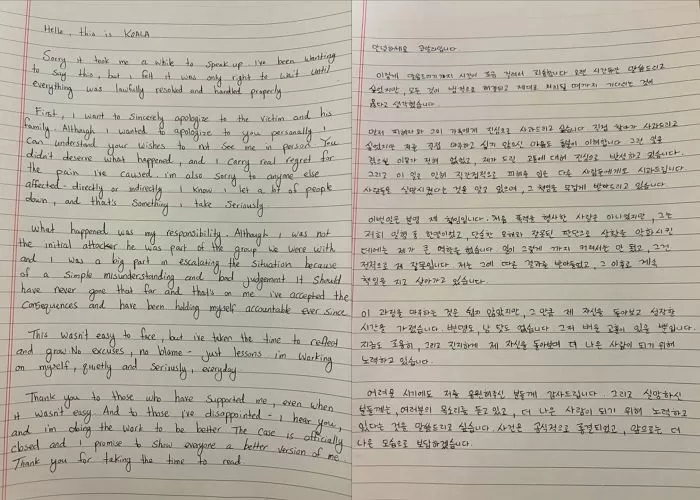 Hello, this is KOALA
Sorry it took me a while to speak up. I've been wanting
to say this, but I felt it was only right to wait until
everything was lawfully resolved and handled properly
First, I want to sincerely apologize to the victim and his
family. Although I wanted to apologize to you personally, I
can understand your wishes to not see me in person. You
didn't deserve what happened, and I carry real regret for
the pain I've caused. i'm also sorry to anyone else
affected - directly or indirectly. I know I let a lot of people
down, and that's something I take seriously.
What happened was my responsibility. Although I was not
the initial attacker he was part of the group we were with
and I was a big part in escalating the situation because
of a simple misunderstanding and bad judgement it should
have never gone that far and that's on me i've accepted the
consequences and have been holding myself accountable ever since
This wasn't easy to face, but i've taken the time to reflect
and grow. No excuses, no blame - just lessons. i'm working
on myself, quietly and seriously, everyday
Thank you to those who have supported me, even when
it wasn't easy. And to those i've disappointed - I hear you,
and i'm doing the work to be better. The case is officially
closed and I promise to show everyone a better version of me.
Thank you for taking the time to read.
안녕하세요 코알라입니다
이렇게 말씀드리기까지 시간이 조금 걸려서 죄송합니다 오랜 시간동안 말씀드리고
싶었지만, 모든 것이 법적으로 해결되고 제대로 처리될 때까지 기다리는 것이
옳다고 생각했습니다.
먼저 피해자와 그의 가족에게 진심으로 사과드리고 싶습니다 직접 찾아가 사과드리고
싶었지만 저를 직접 마주하고 싶지 않으신 마음도 충분히 이해합니다. 그런 일을
겪으실 이유가 전혀 없었고, 제가 드린 고통에 대해 진심으로 반성하고 있습니다.
그리고 이 일로 인해 직간접적으로 피해를 입은 다른 사람들에게도 사과드립니다
사람들을 실망시켰다는 것을 알고 있으며, 그 책임을 무겁게 받아드리고 있습니다
이번일은 분명 제 책임입니다. 처음 폭력을 행사한 사람은 아니었지만, 그는
저희 일행 중 한명이었고, 단순한 오해와 잘못된 판단으로 상황을 악화시킨
데에는 제가 큰 역할을 했습니다 일이 그렇게 까지 커져서는 안 됐고, 그건
전적으로 제 잘못입니다 저는 그에 따른 결과를 받아들였고, 그 이후로 계속
책임을 지고 살아가고 있습니다.
이 과정을 마주하는 것은 쉽지 않았지만, 그 만큼 제 자신을 돌아보고 성장할
시간을 가졌습니다. 변명도, 남 탓도 없습니다. 그저 배운 교훈이 있을 뿐입니다.
지금도 조용히, 그리고 진지하게 제 자신을 돌아보며 더 나은 사람이 되기 위해
노력하고 있습니다.
어려울 시기에도 저를 응원해주신 분들께 감사드립니다. 그리고 실망하신
분들께는, 여러분의 목소리를 듣고 있고, 더 나은 사람이 되기 위해 노력하고
있다는 것을 말씀드리고 싶습니다. 사건은 공식적으로 종결되었고, 앞으로는 더
나은 모습으로 보답하겠습니다.